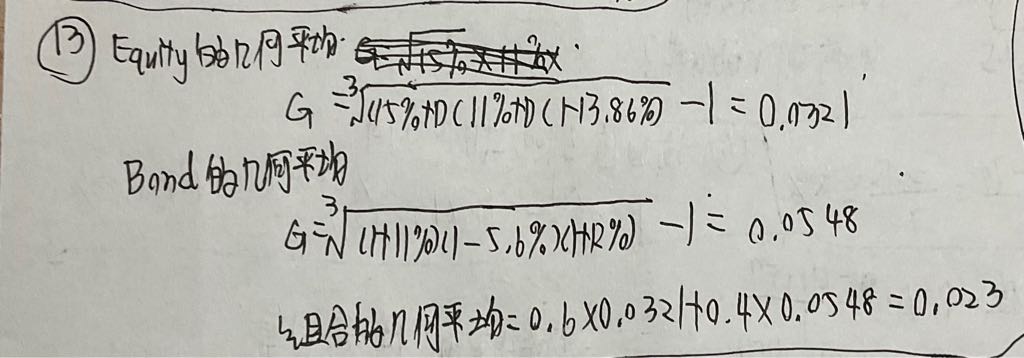 ⑬ Equity的几何平均.
G = ³√(15%+1)(11%+1)(1-13.86%) - 1 = 0.0321
Bond 的几何平均
G = ³√(1+11%)(1-5.6%)(1+12%) - 1 = 0.0548
组合的几何平均 = 0.6×0.0321+0.4×0.0548 = 0.023